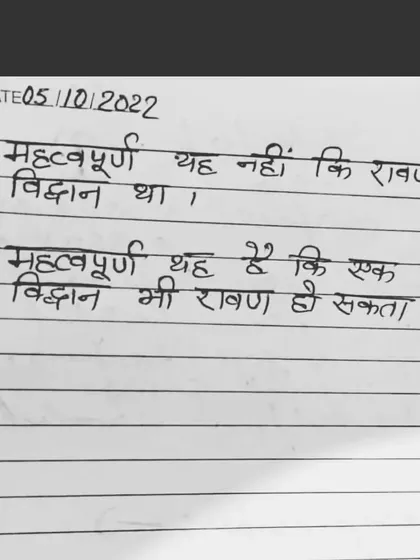 TE 05/10/2022
महत्वपूर्ण यह नहीं कि राव
विद्वान था ।
महत्वपूर्ण यह है कि एक
विद्वान भी रावण हो सकता